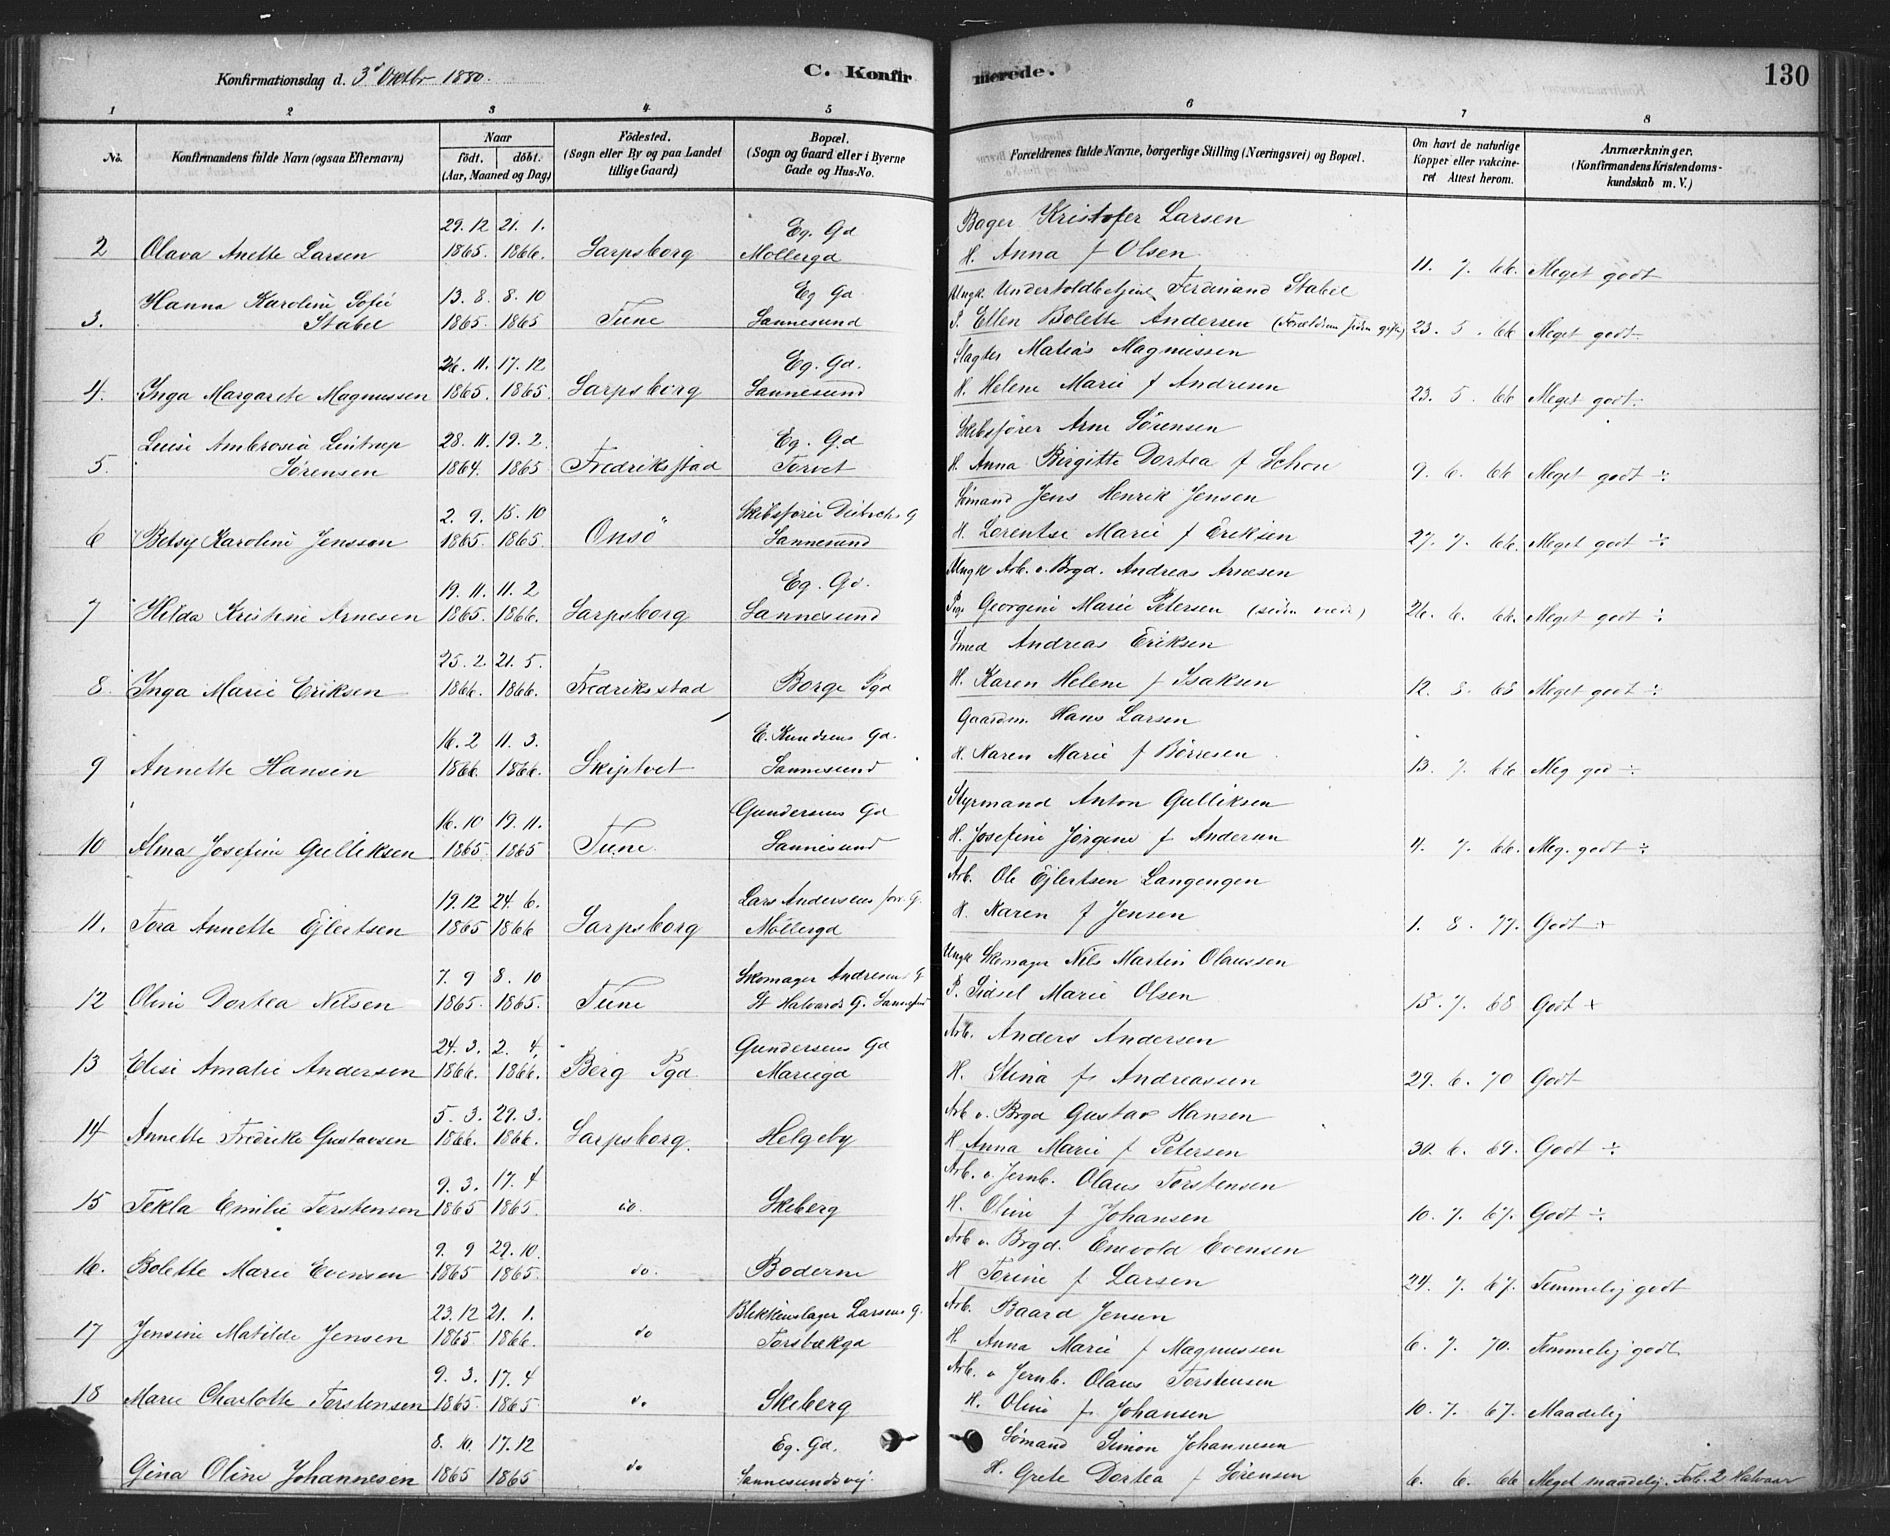 Konfirmationsdag d. 3d Oktbr 1880.
C. Konfir
merede.
130
1 2 3 4 5 6 7 8
No.
Konfirmandens fulde Navn (ogsaa Efternavn)
Naar
födt. döbt.
(Aar, Maaned og Dag)
Födested.
(Sogn eller By og paa Landet
tillige Gaard)
Bopæl.
(Sogn og Gaard eller i Byerne
Gade og Hus-No.
Forældrenes fulde Navne, borgerlige Stilling (Næringsvei) og Bopæl.
Om havt de naturlige
Kopper eller vakcine-
ret Attest herom.
Anmærkninger.
(Konfirmandens Kristendoms-
kundskab m. V.)
29. 12 21. 1. Eg. Gd Bager Kristofer Larsen
2 Olava Anette Larsen 1865. 1866. Sarpsborg Möllergd H. Anna f Olsen 11. 7. 66. Meget godt
Hanna Karolini Sofie 13. 8. 8. 10 Eg Gd Ungk. Undertoldbetjent Ferdinand Stabel
3. Stabel 1865. 1865 Tune Sannesund P. Ellen Bolette Andersen (Forældrene siden gifte) 23. 5. 66 Meget godt
26. 11. 17. 12 Eg. Gd. Slagter Matias Magnussen
4. Inga Margarete Magnussen 1865. 1865. Sarpsborg Sannesund H. Helene Marie f Andresen 23. 5. 66 Meget godt
Luise Ambrosia Lintrup 28. 11. 19. 2. Eg. Gd Skibsfører Arne Sörensen
5. Sörensen 1864. 1865 Fredriksstad Torvet H. Anna Birgitte Dortea f Schou 9. 6. 66 Meget godt ÷
2. 9. 15. 10 Skibsförer Dietrichs G Sömand Jens Henrik Jensen
6 Betsy Karolini Jensson 1865. 1865. Onsö Sannesund H. Lorentse Marie f Eriksen 27. 7. 66. Meget godt ÷
19. 11. 11. 2 Eg. Gd. Ungk Arb. v. Brgd. Andreas Arnesen
7 Hilda Kristine Arnesen 1865. 1866. Sarpsborg Sannesund Pige Georgini Marie Petersen (siden viede) 26. 6. 66. Meget godt ÷
25. 2. 21. 5. Smed Andreas Eriksen
8. Inga Marie Eriksen 1866. 1866. Fredriksstad Borge Pgd H. Karen Helene f Isaksen 12. 8. 68 Meget godt ÷
16. 2 11. 3. E. Knudsens Gd. Gaardm. Hans Larsen
9 Annette Hansen 1866. 1866. Skiptvet Sannesund H. Karen Marie f Börresen 13. 7. 66 Meg god ÷
16. 10 19. 11. Gundersens Gd Styrmand Anton Gulliksen
10 Alma Josefine Gulliksen 1865. 1865 Tune Sannesund H. Josefine Jörgine f Andersen 4. 7. 66. Meg. godt ÷
19. 12 24. 6. Lars Andersens forr. G. Arb. Ole Ejlertsen Langengen
11. Tora Annette Ejlertsen 1865 1866 Sarpsborg Möllergd H. Karen f Jensen 1. 8. 77. Godt +
7. 9 8. 10 Skomager Andresens G Ungk Skomager Nils Martin Olaussen
12 Oline Dortea Nilsen 1865. 1865. Tune St Halvards G. Sannesund P. Sidsel Marie Olsen 15. 7. 68 Godt +
24. 3. 2. 4. Gundersens Gd Arb. Anders Andersen
13 Elise Amalie Andersen 1866. 1866. Berg Pgd Mariegd H. Stina f. Andreassen 29. 6. 70 Godt
5. 3. 29. 3. Arb v. Brgd Gustav Hansen
14 Annette Fredrike Gustavsen 1866. 1866. Sarpsborg. Helgeby H Anna Marie f Petersen 30. 6. 69. Godt ÷
9. 3. 17. 4 Arb. v. Jernb. Olaus Torstensen
15 Tekla Emilie Torstenson 1865 1865. do. Skeberg H. Oline f Johansen 10. 7. 67. Godt ÷
9. 9 29. 10. Arb v. Brgd. Enevold Evensen
16. Bolette Marie Evensen 1865 1865. do. Boderne H Torine f Larsen 24. 7. 67. Temmelig godt
23. 12 21. 1. Blikkenslager Larsens G. Arb. Baard Jensen
17 Jensine Matilde Jensen 1865 1866. do Torsbækgd H. Anna Marie f Magnussen 6. 7. 70. Temmelig godt
9. 3. 17. 4 Arb. v Jernb. Olaus Torstensen
18 Marie Charlotte Torstensen 1865. 1865 do Skeberg H. Oline f. Johansen 10. 7. 67. Maadelig
8. 10. 17. 12 Eg. Gd. Sömand Simon Johannesen
Gina Oline Johannesen 1865 1865 do Sannesundsvej. H. Grete Dortea f Sörensen 6. 6. 66 Meget maadelig. Forb. 2 Halvaar